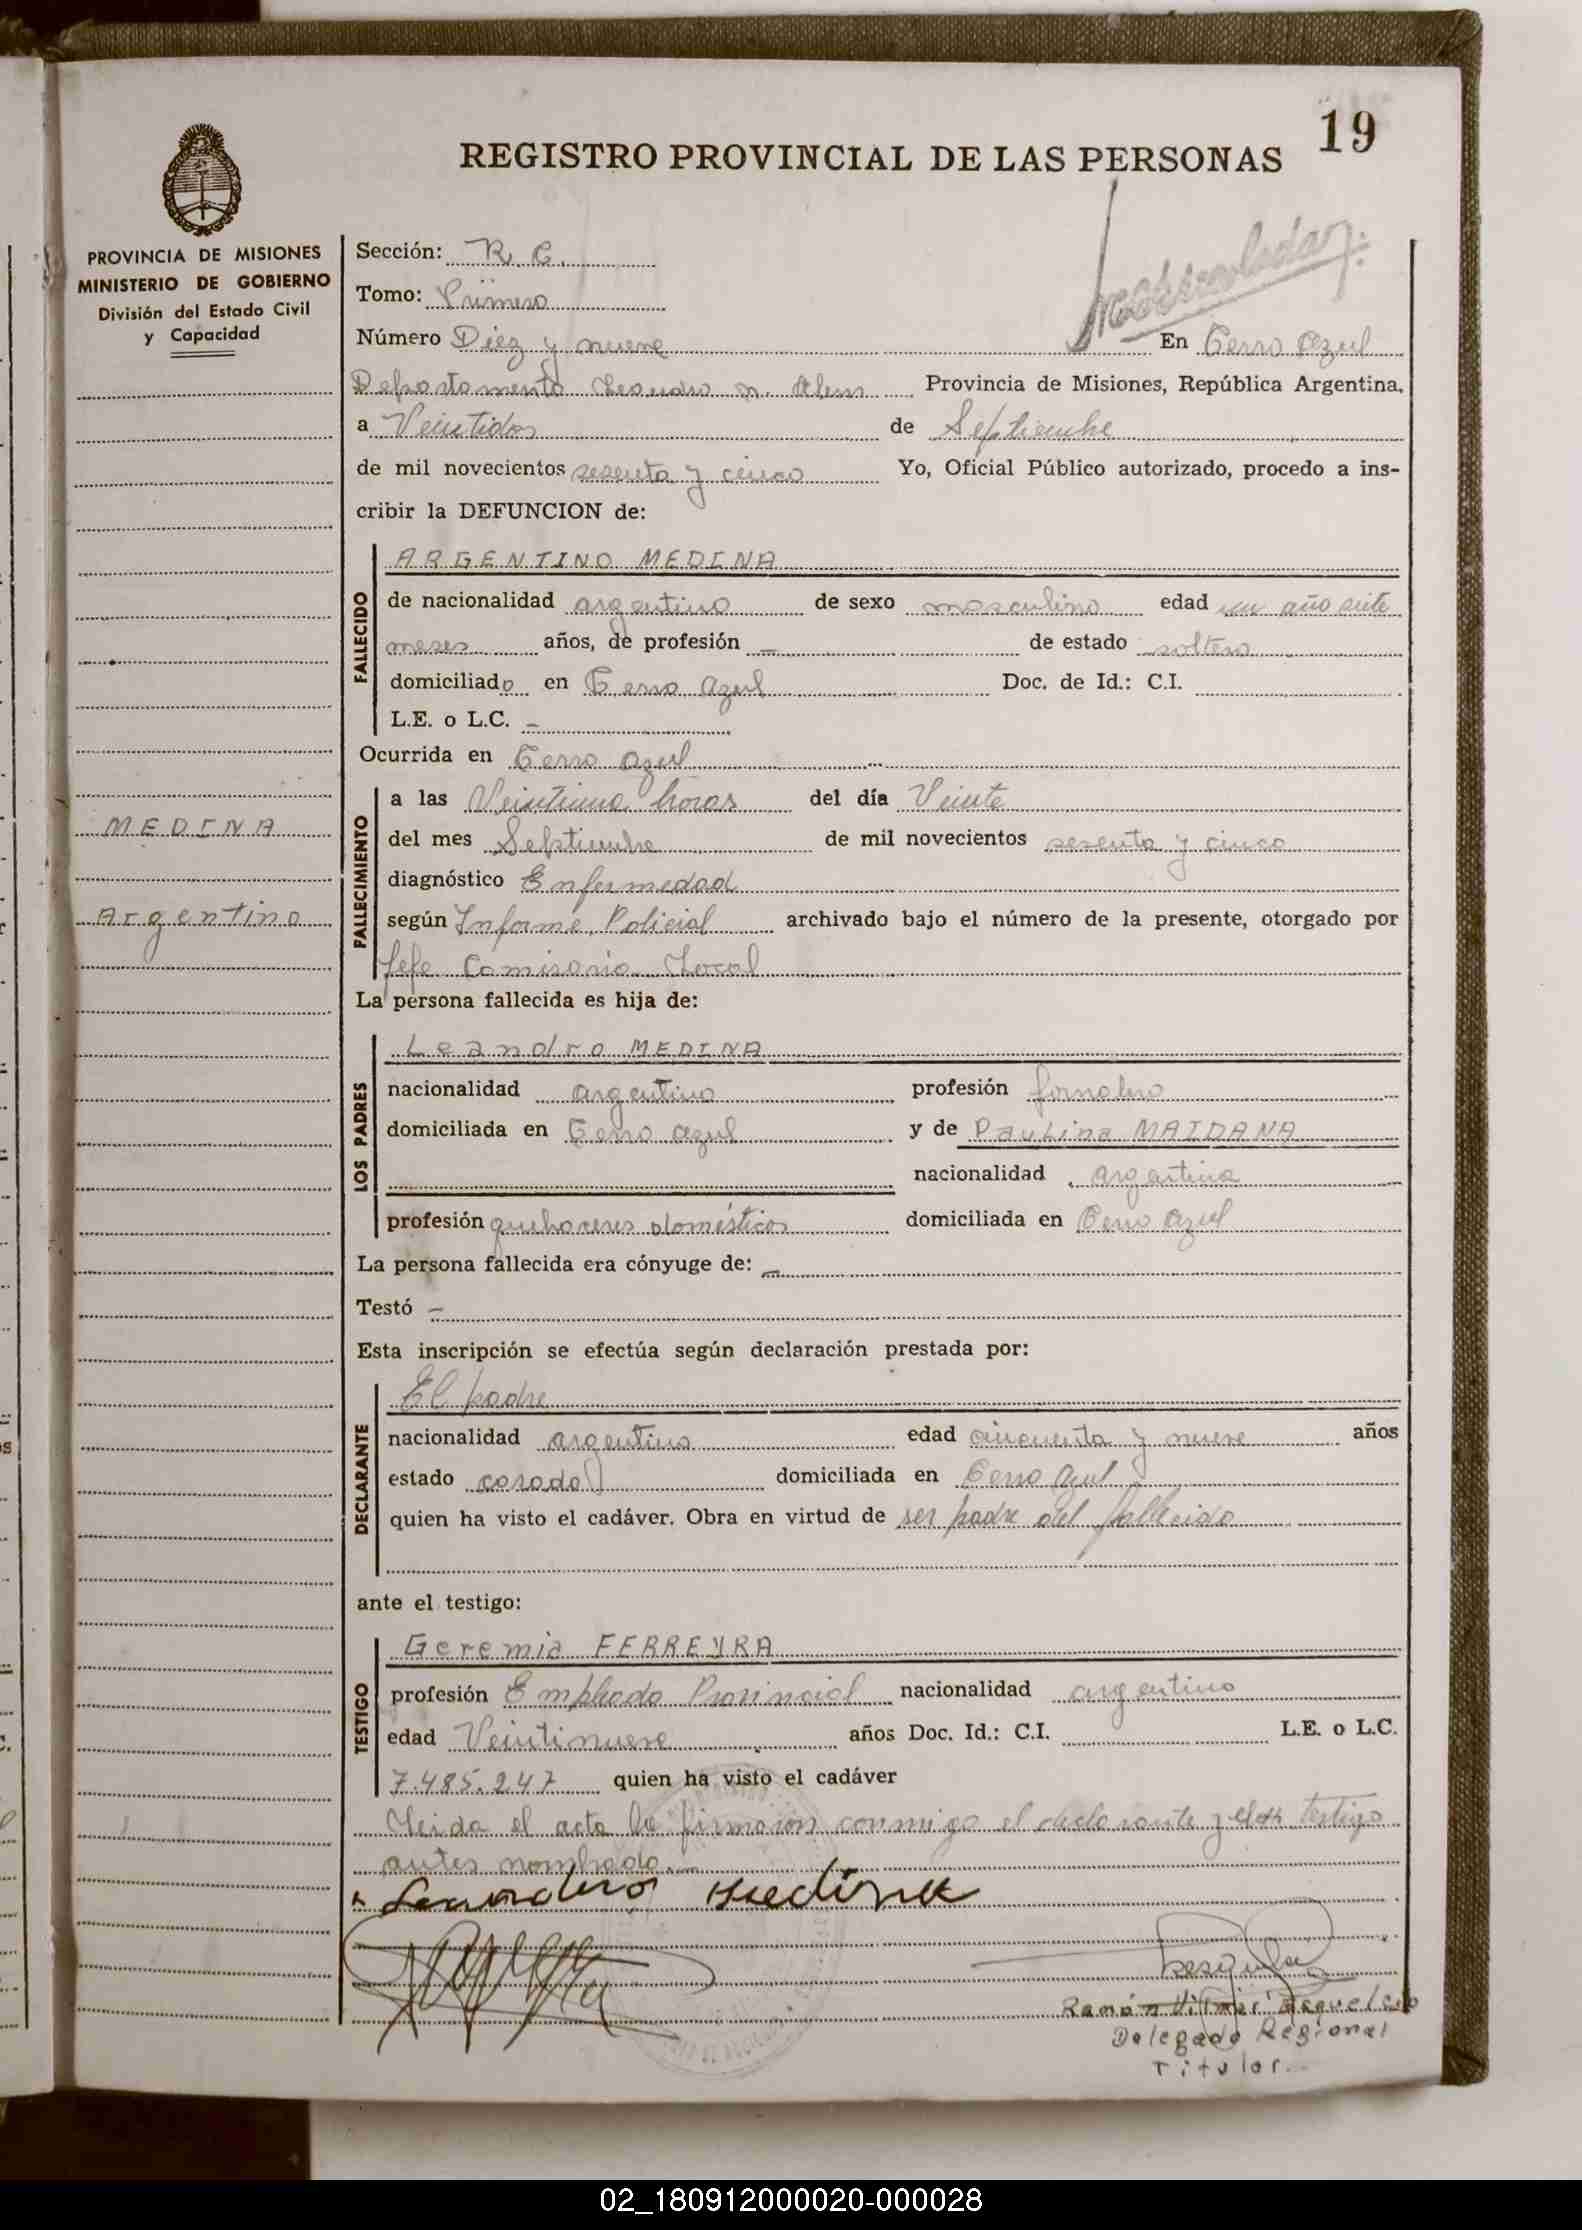 19
REGISTRO PROVINCIAL DE LAS PERSONAS
PROVINCIA DE MISIONES
MINISTERIO DE GOBIERNO
División del Estado Civil
y Capacidad
MEDINA
Argentino
Sección: R. C.
Tomo: Primero
Número Diez y nueve En Cerro Azul
Departamento Leandro N. Alem Provincia de Misiones, República Argentina,
a Veintidos de Septiembre
de mil novecientos sesenta y cinco Yo, Oficial Público autorizado, procedo a ins-
cribir la DEFUNCION de:
FALLECIDO
ARGENTINO MEDINA
de nacionalidad argentino de sexo masculino edad un año siete
meses años, de profesión — de estado soltero
domiciliado en Cerro Azul Doc. de Id.: C.I.
L.E. o L.C. —
Ocurrida en Cerro Azul
FALLECIMIENTO
a las Veintiuna horas del día Veinte
del mes Septiembre de mil novecientos sesenta y cinco
diagnóstico Enfermedad
según Informe Policial archivado bajo el número de la presente, otorgado por
Jefe Comisaria Local
La persona fallecida es hija de:
LOS PADRES
Leandro MEDINA
nacionalidad argentino profesión jornalero
domiciliada en Cerro Azul y de Paulina MAIDANA
nacionalidad argentina
profesión quehaceres domésticos domiciliada en Cerro Azul
La persona fallecida era cónyuge de: —
Testó —
Esta inscripción se efectúa según declaración prestada por:
DECLARANTE
El padre
nacionalidad argentino edad cincuenta y nueve años
estado casado domiciliada en Cerro Azul
quien ha visto el cadáver. Obra en virtud de ser padre del fallecido
ante el testigo:
TESTIGO
Geremia FERREYRA
profesión Empleado Provincial nacionalidad argentino
edad Veintinueve años Doc. Id.: C.I. L.E. o L.C.
7.485.247 quien ha visto el cadáver
Leida el acta la firmaron conmigo el declarante y el testigo
antes nombrado.
Leandro Medina
Delegado Regional
Titular.
02_180912000020-000028